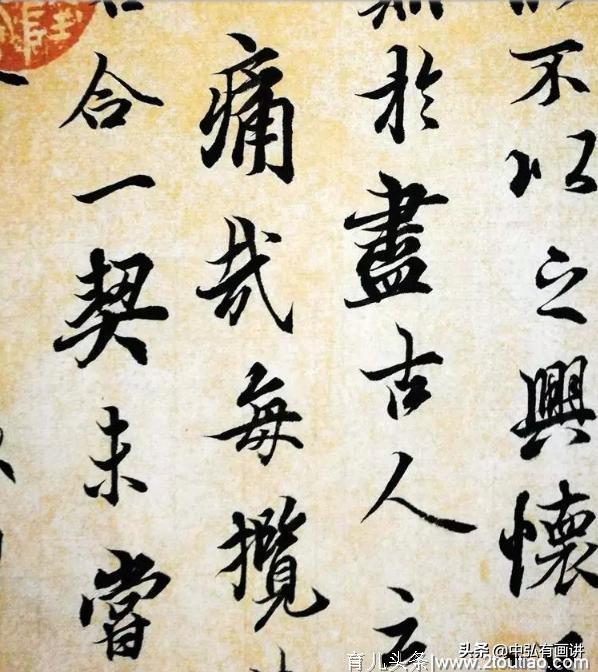 不以之興懷
於盡古人云
痛哉每攬
合一契未嘗
头条 @中弘有画讲
育儿头条//www.21outiao.com